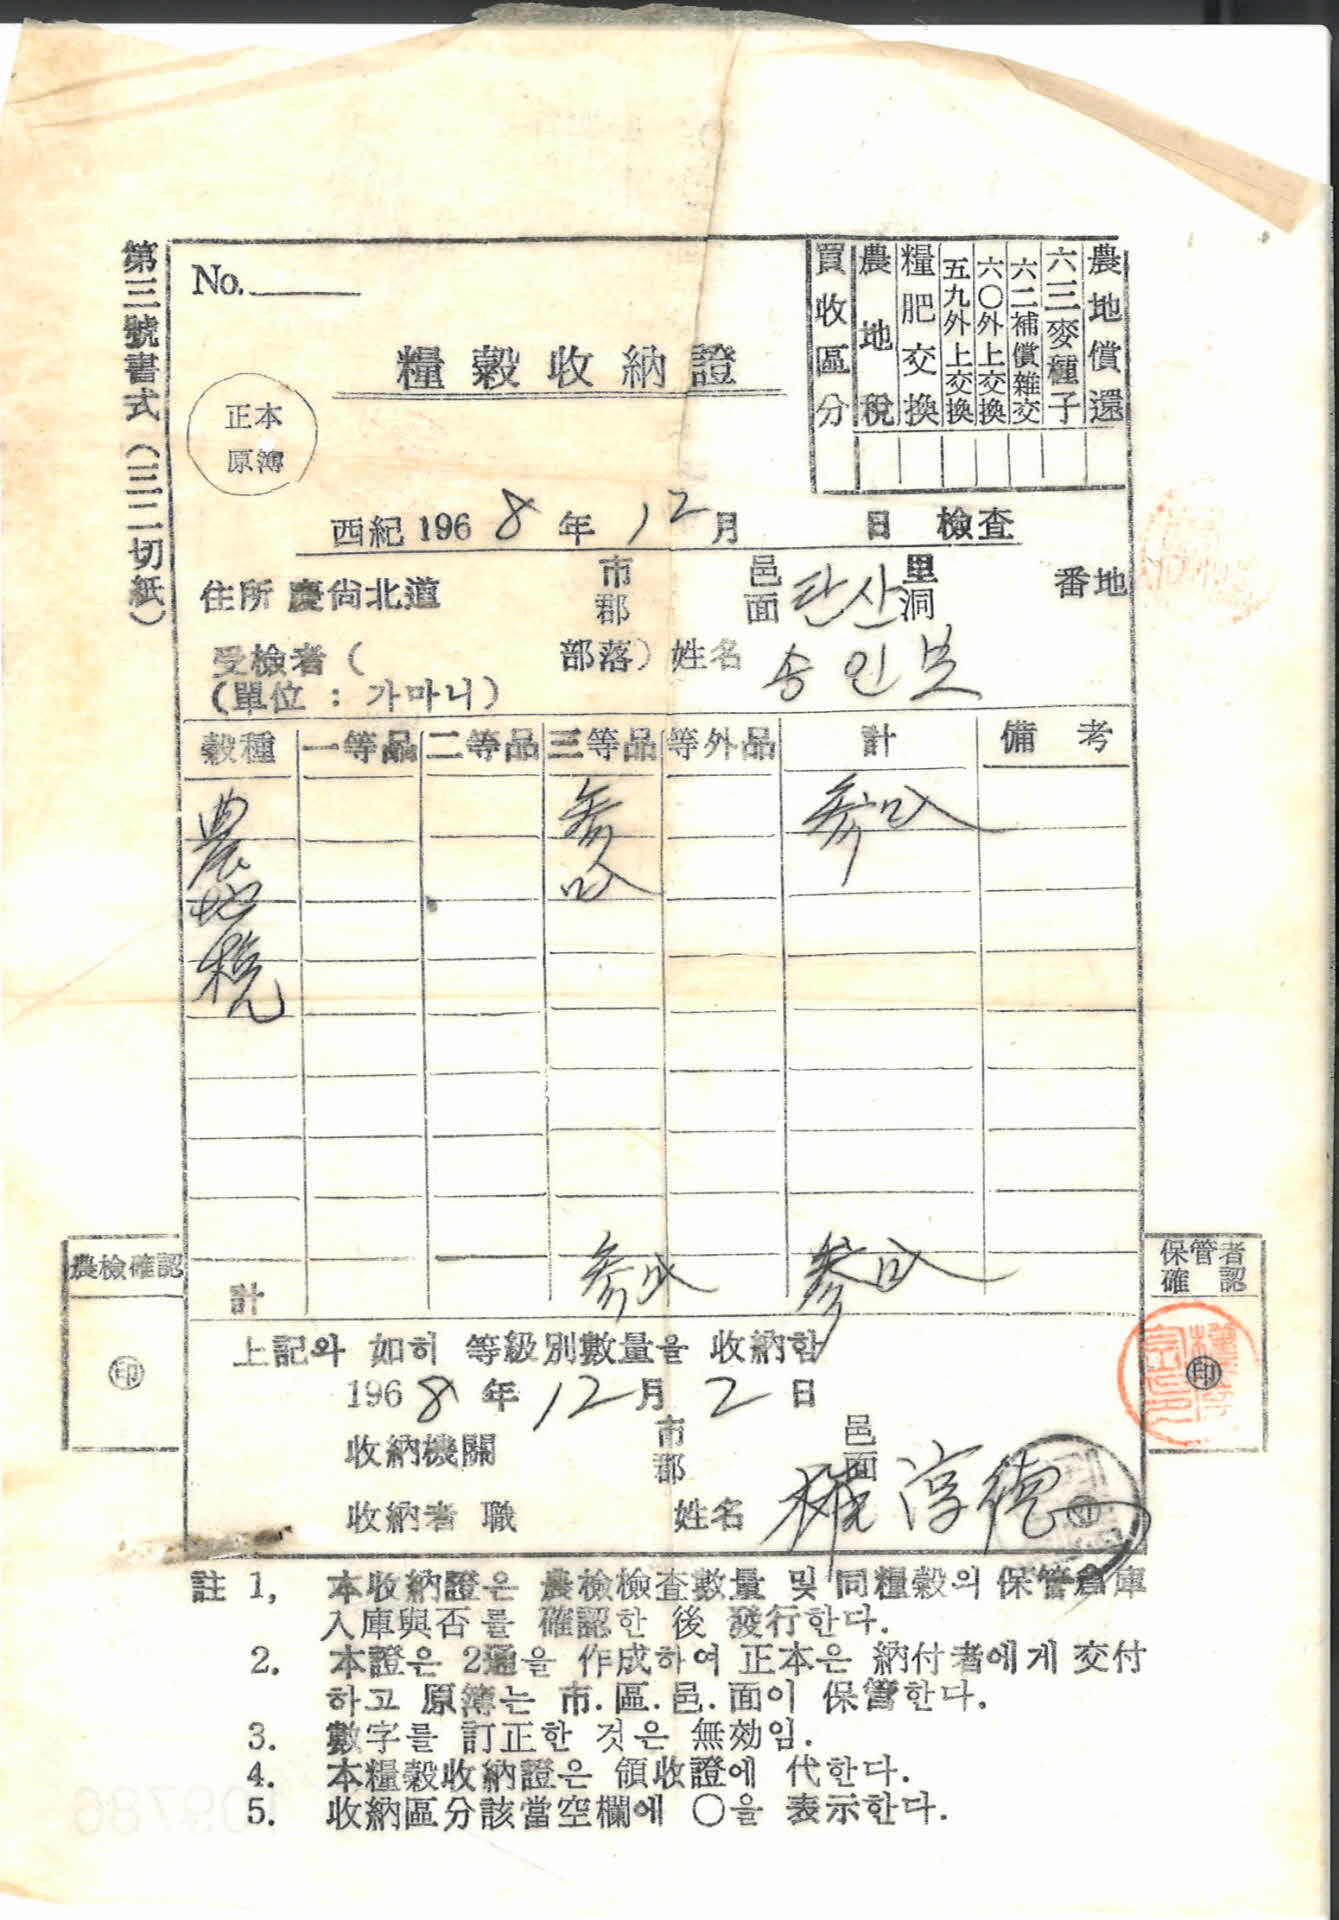 第三號書式（三二切紙）
No.
糧穀收納證
正本
原簿
買收區分
農地稅
糧肥交換
五九外上交換
六〇外上交換
六二補償雜交
六三麥種子
農地償還
西紀 1968年 12月 日 檢査
住所 慶尙北道 市郡 邑面 관산 里洞 番地
受檢者 ( 部落) 姓名 송인보
(單位 : 가마니)
穀種 一等品 二等品 三等品 等外品 計 備考
農地稅 參叺 參叺
計 參叺 參叺
農檢確認
印
保管者
確認
印
上記와 如히 等級別數量을 收納함
1968年 12月 2日
收納機關 市郡 邑面
收納者 職 姓名 淳德
註 1, 本收納證은 農檢檢査數量 및 同糧穀의 保管倉庫
入庫與否를 確認한 後 發行한다.
2. 本證은 2通을 作成하여 正本은 納付者에게 交付
하고 原簿는 市.區.邑.面이 保管한다.
3. 數字를 訂正한 것은 無効임.
4. 本糧穀收納證은 領收證에 代한다.
5. 收納區分該當空欄에 ○을 表示한다.